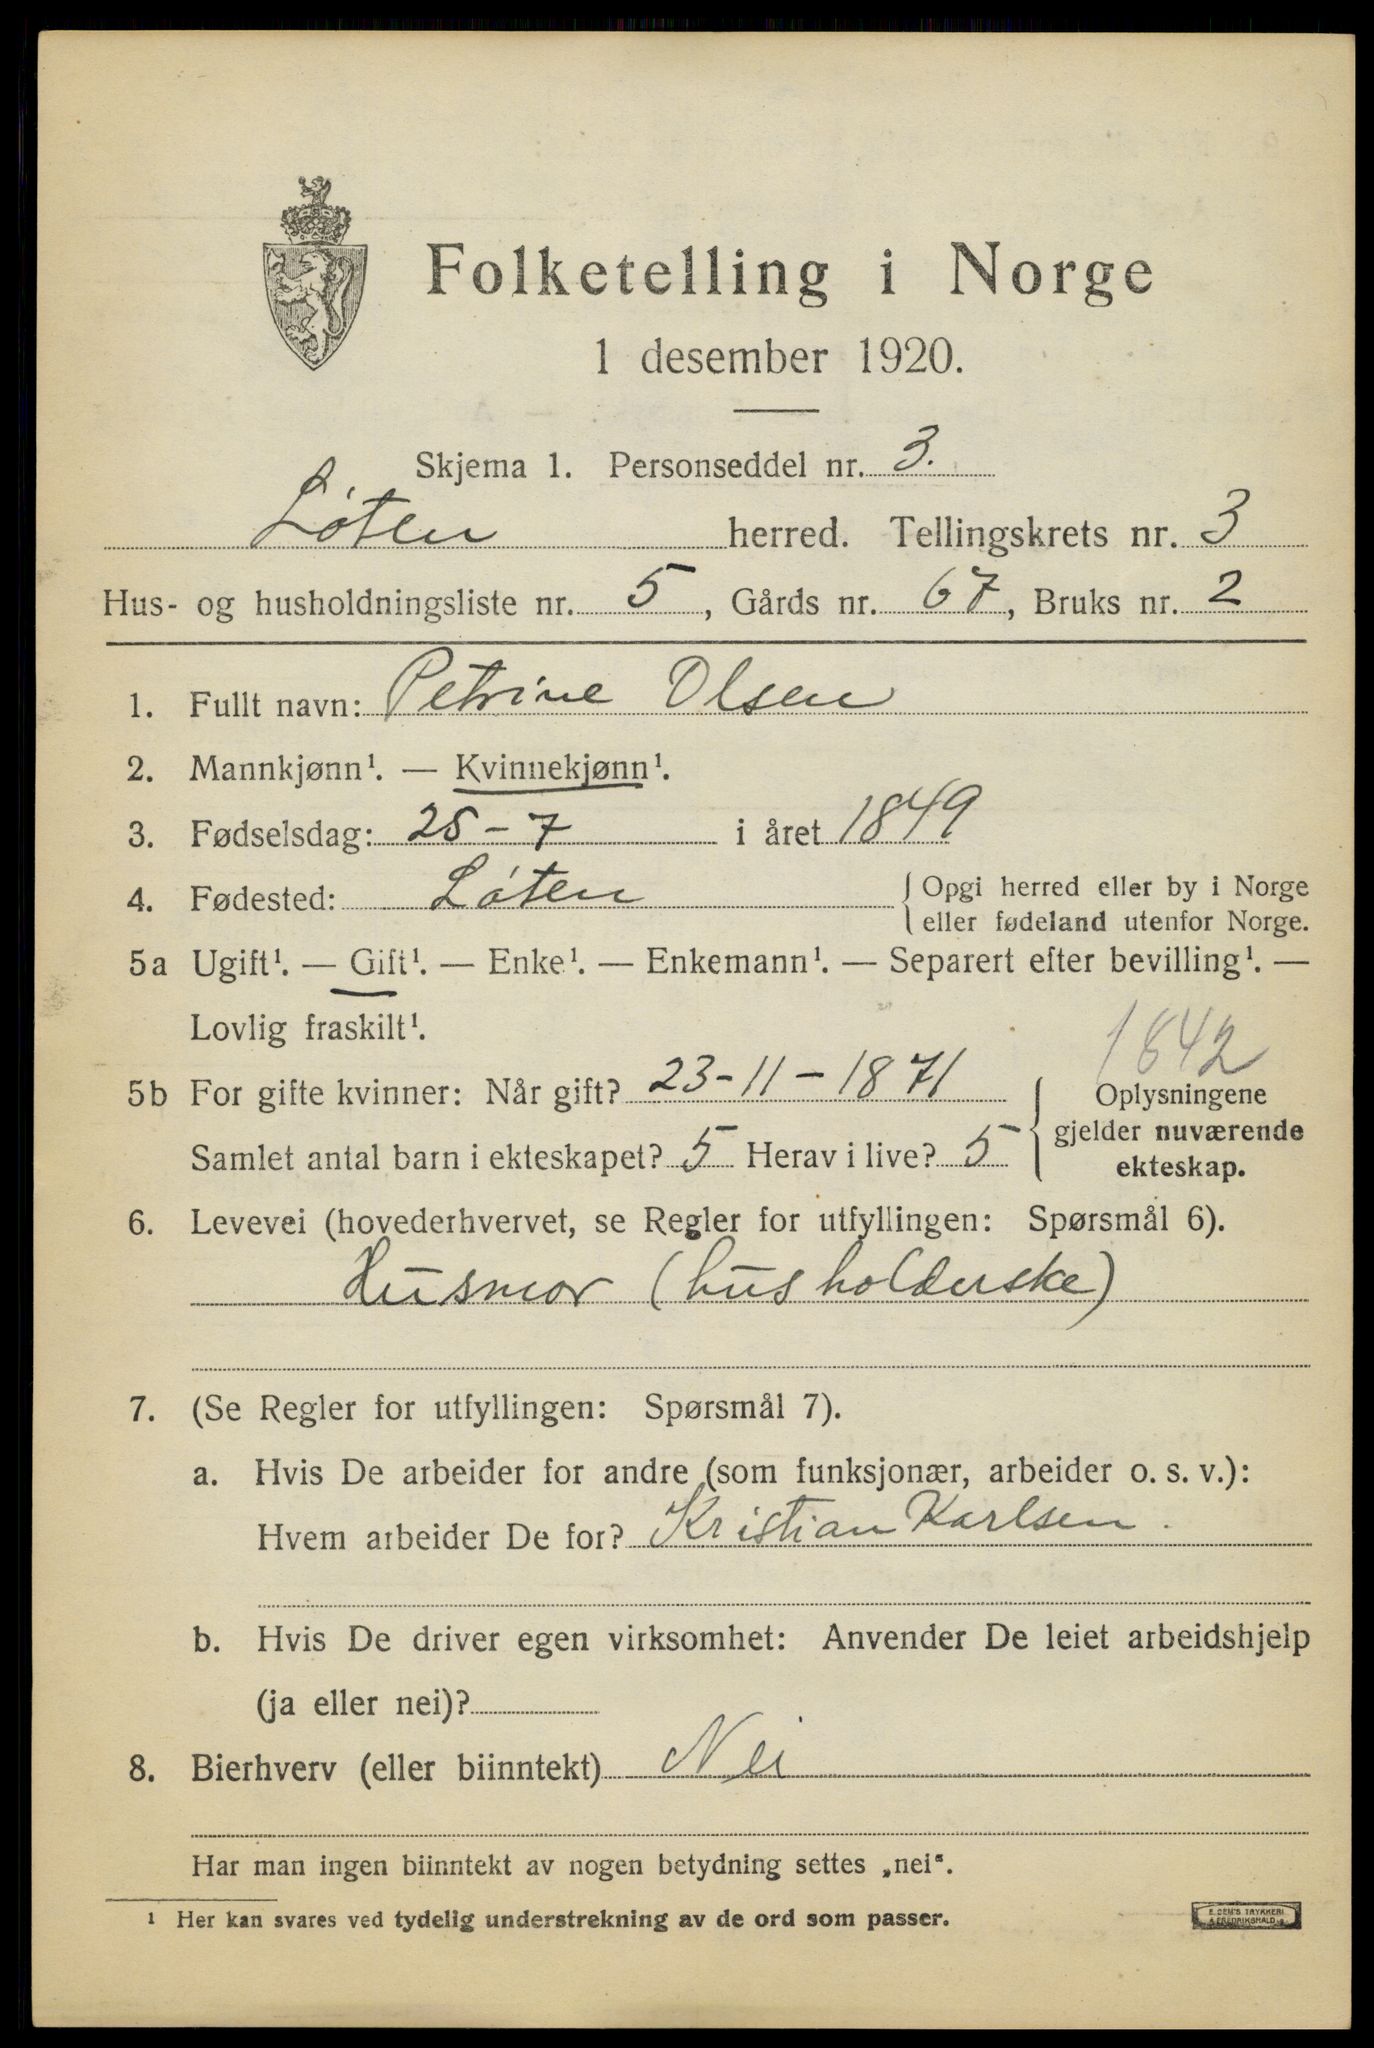 Folketelling i Norge
1 desember 1920.
Skjema 1. Personseddel nr. 3.
Løten herred. Tellingskrets nr. 3
Hus- og husholdningsliste nr. 5, Gårds nr. 67, Bruks nr. 2
1. Fullt navn: Petrine Olsen
2. Mannkjønn¹. — Kvinnekjønn¹.
3. Fødselsdag: 25-7 i året 1849
4. Fødested: Løten { Opgi herred eller by i Norge
eller fødeland utenfor Norge.
5a Ugift¹. — Gift¹. — Enke¹. — Enkemann¹. — Separert efter bevilling¹. —
Lovlig fraskilt¹.
1842
5b For gifte kvinner: Når gift? 23-11-1871 Oplysningene
gjelder nuværende
Samlet antal barn i ekteskapet? 5 Herav i live? 5 ekteskap.
6. Levevei (hovederhvervet, se Regler for utfyllingen: Spørsmål 6).
Husmor (husholderske)
7. (Se Regler for utfyllingen: Spørsmål 7).
a. Hvis De arbeider for andre (som funksjonær, arbeider o. s. v.):
Hvem arbeider De for? Kristian Karlsen.
b. Hvis De driver egen virksomhet: Anvender De leiet arbeidshjelp
(ja eller nei)?
8. Bierhverv (eller biinntekt) Nei
Har man ingen biinntekt av nogen betydning settes „nei“.
¹ Her kan svares ved tydelig understrekning av de ord som passer.